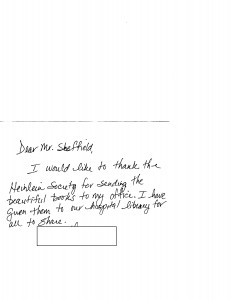 Dear Mr. Sheffield,
I would like to thank the
Heinlein Society for sending the
beautiful books to my office. I have
given them to our hospital library for
all to share.